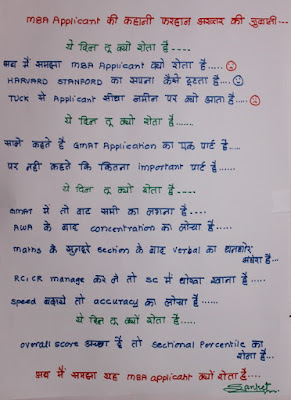 MBA Applicant की कहानी फरहान अख्तर की जुबानी...
ये दिल तू क्यों रोता है----
अब मैं समझा MBA Applicant क्यों रोता है.....
HARVARD STANFORD का सपना कैसे टूटता है....
TUCK से Applicant सीधा जमीन पर क्यों आता है....
ये दिल तू क्यों रोता है....
साले कहते है GMAT Application का एक पार्ट है....
पर नहीं कहते कि कितना important पार्ट है......
ये दिल तू क्यों रोता है----
GMAT में तो वाट सभी का लगना है----
AWA के बाद concentration का लोचा है.....
maths के सुनहरे section के बाद verbal का घनघोर
अंधेरा है...
RC,CR manage करे तो SC में धोखा खाना है....
speed बढ़ाये तो accuracy का लोचा है.....
ये दिल तू क्यों रोता है.....
overall score अच्छा है तो sectional percentile का
रोना है...
अब मैं समझा यह MBA applicant क्यों रोता है.....
Sanket